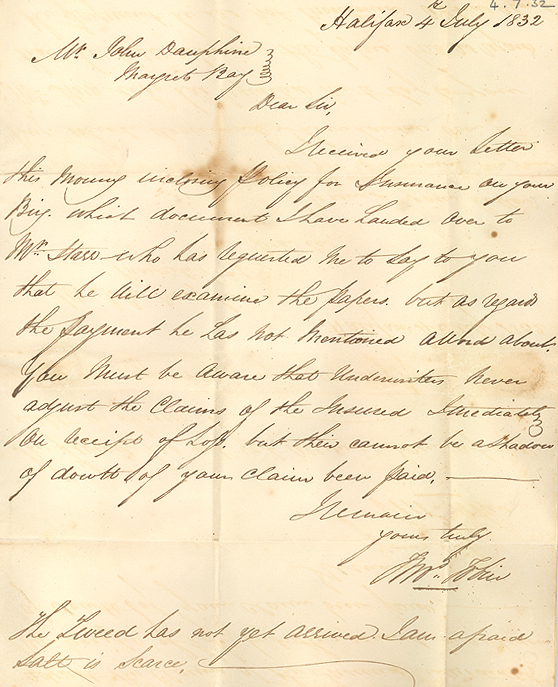 4.7.32
Halifax 4 July 1832
Mr. John Dauphine
Margrets Bay
Dear Sir,
I received your letter
this Morning inclosing Policy for Insurance on your
Brig. which document I have handed over to
Mr. Starr who has requested me to say to you
that he will examine the Papers. but as regards
the Payment he has not Mentioned a Word about.
You Must be Aware that Underwriters Never
adjust the Claims of the Insured Imediately
On receipt of Loss. but their cannot be a shadow
of doubt of your Claim been paid.
I remain
yours truly
Thos. Tobin
The Tweed has not yet arrived. I am afraid
Salt is Scarce.